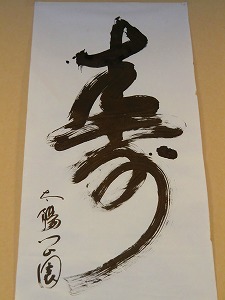 寿
太陽の園